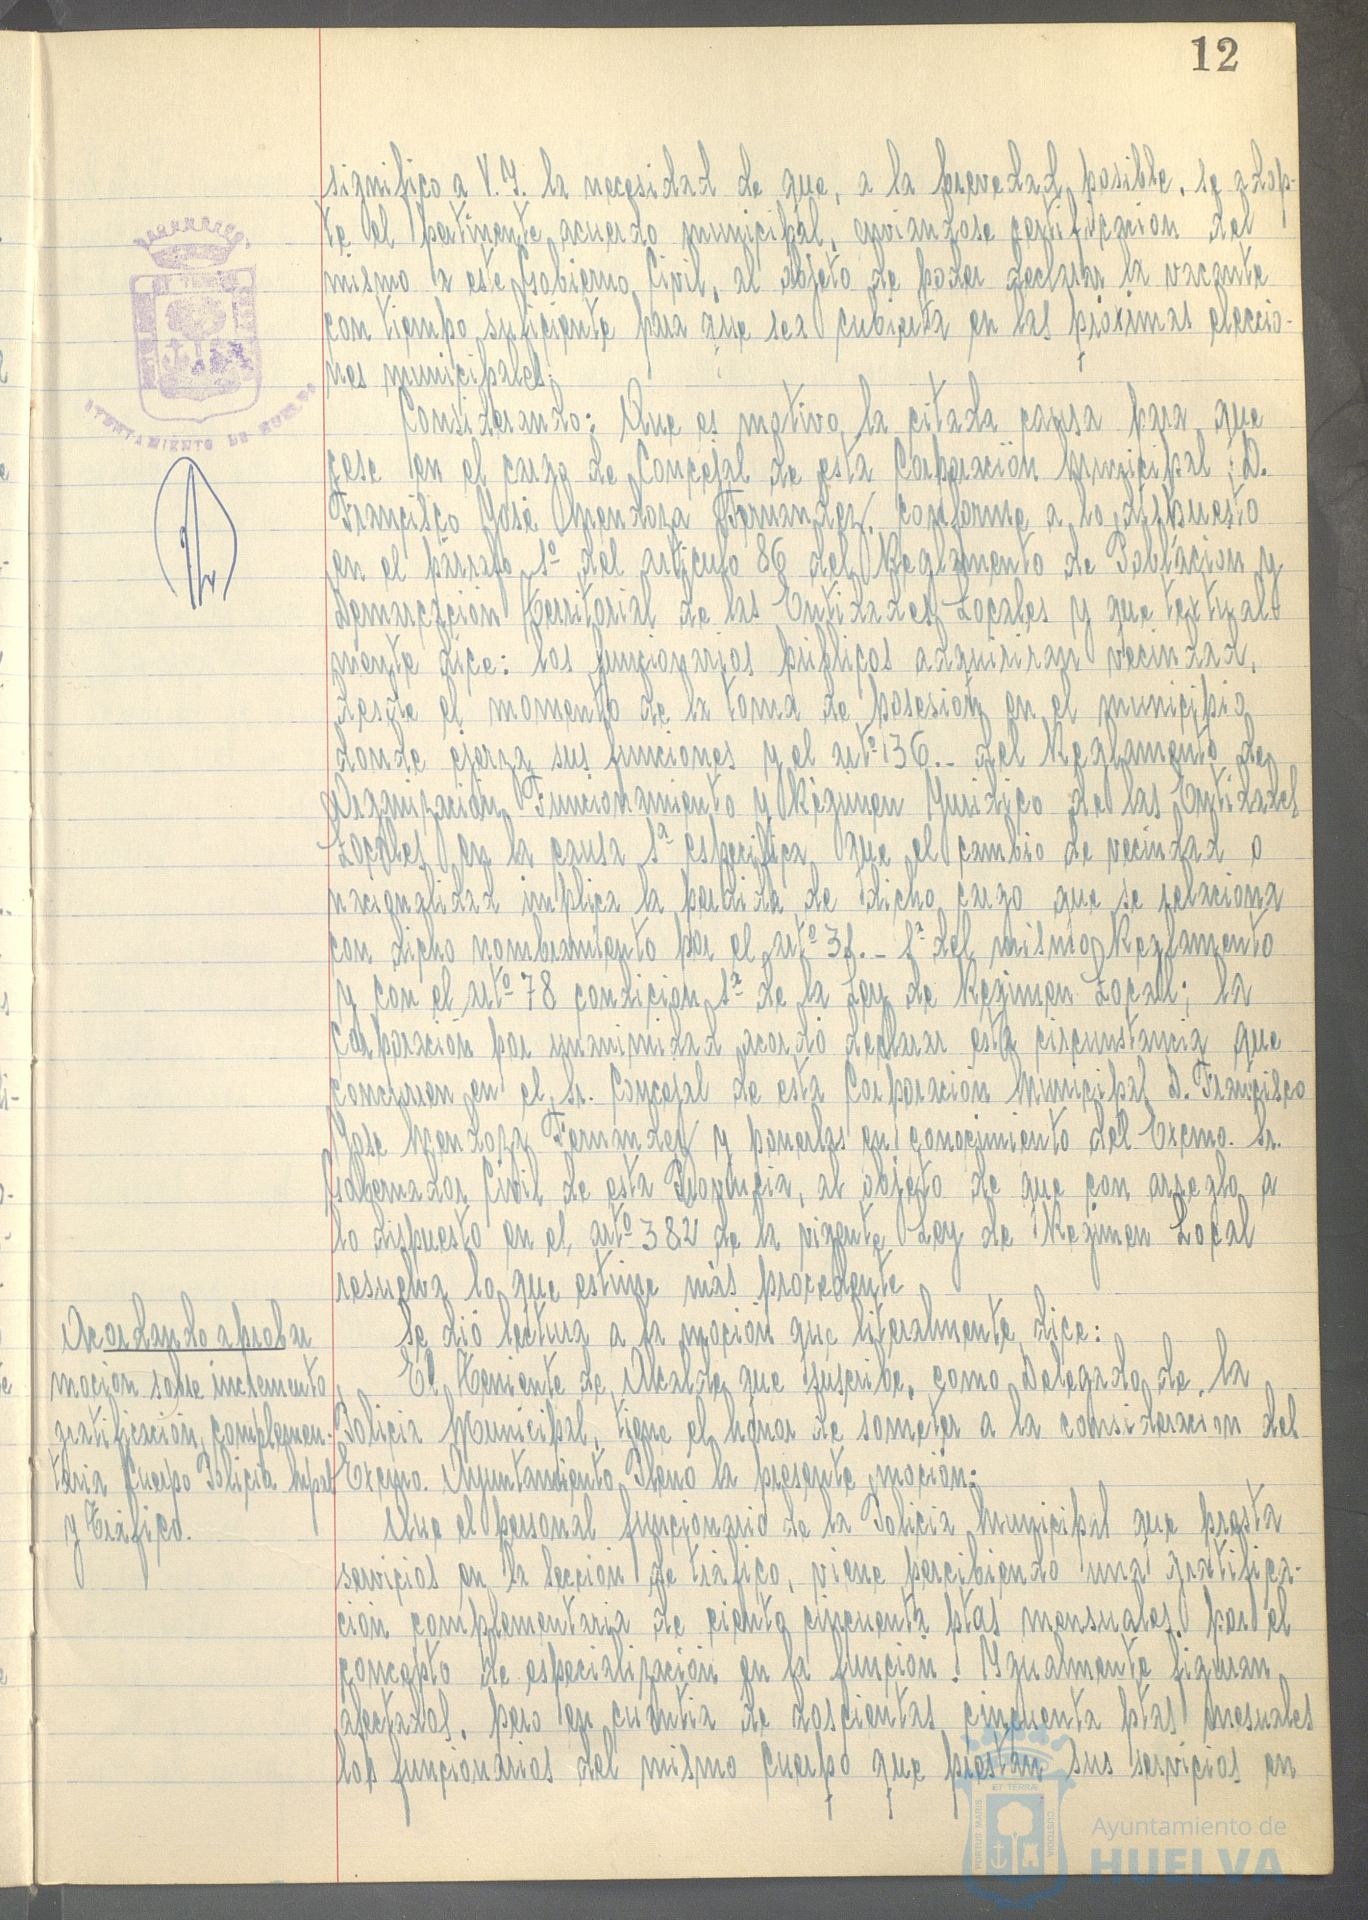 12
significo a V.I. la necesidad de que, a la brevedad posible, se adop-
te el pertinente acuerdo municipal, enviandose certificacion del
mismo a este Gobierno Civil, al objeto de poder declarar la vacante
con tiempo suficiente para que sea cubierta en las próximas eleccio-
nes municipales.
Considerando: Que es motivo la citada causa para que
cese en el cargo de Concejal de esta Corporación Municipal, D.
Francisco José Mendoza Fernandez, conforme a lo dispuesto
en el párrafo 1º del articulo 86 del Reglamento de Población y
Demarcación Territorial de las Entidades Locales y que textual
mente dice: los funcionarios públicos adquiriran vecindad,
desde el momento de la toma de posesión en el municipio
donde ejerza sus funciones y el artº 136.- del Reglamento de
Organización Funcionamiento y Régimen Juridico de las Entidades
Locales en la causa 1ª especifica que el cambio de vecindad o
nacionalidad implica la perdida de dicho cargo que se relaciona
con dicho nombramiento por el artº 31.- 1ª del mismo Reglamento
y con el artº 78 condicion 1ª de la Ley de Regimen Local; la
Corporación por unanimidad acordó declarar esta circunstancia que
concurren en el Sr. Concejal de esta Corporación Municipal D. Francisco
José Mendoza Fernandez y ponerlas en conocimiento del Excmo. Sr.
Gobernador Civil de esta Provincia, al objeto de que con arreglo a
lo dispuesto en el artº 382 de la vigente Ley de Régimen Local
resuelva lo que estime más procedente
Acordando aprobar
moción sobre incremento
gratificación complemen-
taria Cuerpo Policia Mpal
y Tráfico.
Se dió lectura a la moción que literalmente dice:
El Teniente de Alcalde que suscribe, como Delegado de la
Policia Municipal, tiene el honor de someter a la consideracion del
Excmo. Ayuntamiento Pleno la presente moción:
Que el personal funcionario de la Policia Municipal que presta
servicios en la Sección de tráfico, viene percibiendo una gratifica-
ción complementaria de ciento cincuenta ptas mensuales por el
concepto de especialización en la función. Igualmente figuran
afectados, pero en cuantia de doscientas cincuenta ptas mesuales
los funcionarios del mismo Cuerpo que prestan sus servicios en
AYUNTAMIENTO DE HUELVA
PORTUS MARIS
ET TERRÆ
CUSTODIA
Ayuntamiento de
HUELVA